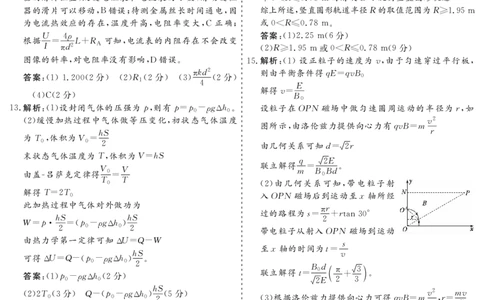 器的滑片可以移动,B错误;待测金属丝长时间通电,因
为电流热效应的存在,温度升高,电阻率变大,C正确;
根据U/I=4ρ/πd²L+R_A可知,电流表的内阻存在不会改变
图像的斜率,对电阻率没有影响,D错误。
答案:(1)1.200(2分) (2)R₁(2分) (3)πkd²/4(2分)
(4)C(2分)
13.解析:(1)设封闭气体的压强为p,则有p=p₀-ρgΔh₀。
(2)缓慢加热过程中气体做等压变化,初状态气体温度
为T₀,体积为V₀=hS/2
末状态气体温度为T,体积为V=hS
由盖·吕萨克定律得V₀/T₀=V/T
解得T=2T₀
此加热过程中气体对外做功为
W=p·hS/2=(p₀-ρgΔh₀)hS/2
由热力学第一定律可知ΔU=Q-W
可得ΔU=Q-(p₀-ρgΔh₀)hS/2。
答案:(1)p₀-ρgΔh₀(2分)
(2)2T₀(3分) Q-(p₀-ρgΔh₀)hS/2(5分)
综上所述,竖直圆形轨道半径R的取值范围为R≥1.95 m
或0<R≤0.78 m。
答案:(1)2.25 m(6分)
(2)R≥1.95 m或0<R≤0.78 m(9分)
15.解析:(1)设正粒子的速度为v,由于匀速穿过平行板,
则由平衡条件得qE=qvB₀
解得v=E/B₀
设粒子在OPN磁场中做匀速圆周运动的半径为r,如
图所示,由洛伦兹力提供向心力有qvB=mv²/r
由几何关系可知d=√2r
联立解得q/m=√2E/B₀Bd。
(2)由几何关系可知,带电粒子射
入OPN磁场后到运动至x轴所经
过的路程为s=πr/2+rtan 30°
带电粒子从射入OPN磁场到运动
至x轴的时间为t=s/v
联立解得t=B₀d/√2E(π/2+√3/3)。
(3)根据洛伦兹力提供向心力可得qvB=mv²/r,r=mv
y
N
P
B
O′
O
x